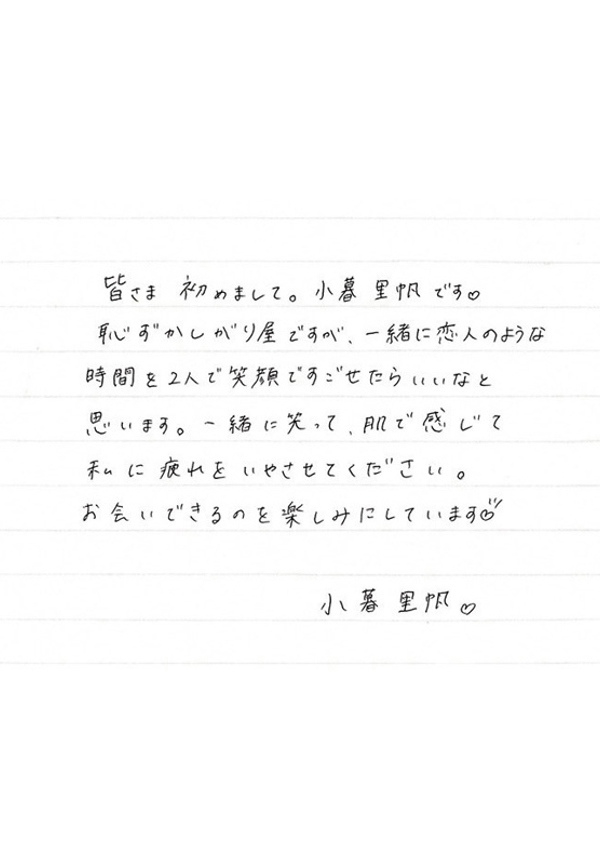 皆さま 初めまして。小暮里帆です♡
恥ずかしがり屋ですが、一緒に恋人のような
時間を2人で笑顔ですごせたらいいなと
思います。一緒に笑って、肌で感じて
私に疲れをいやさせてください。
お会いできるのを楽しみにしています♡
小暮里帆♡